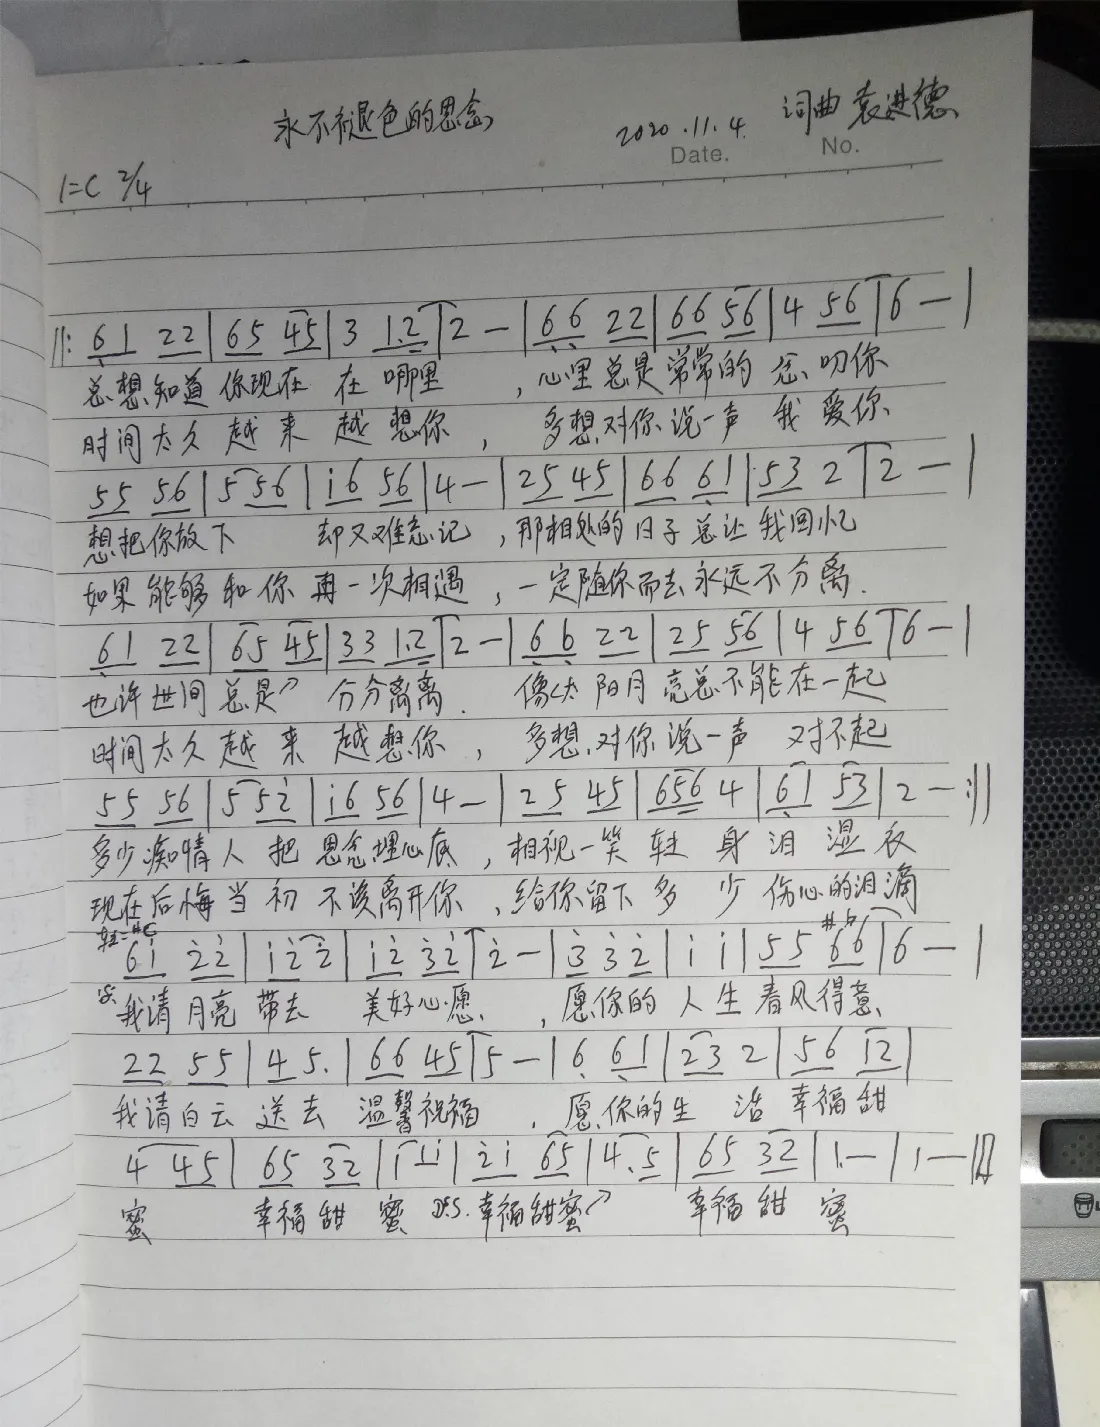 永不褪色的思念
2020.11.4. 词曲 袁进德
Date. No.
1=C 2/4
‖: 6 1 2 2 | 6 5 4 5 | 3 1.2 | 2 — | 6 6 2 2 | 6 6 5 6 | 4 5 6 | 6 — |
总想知道 你现在 在 哪里 , 心里总是常常的 念叨你
时间太久 越来 越 想你 , 多想对你说一声 我 爱你
5 5 5 6 | 5 5 6 | i 6 5 6 | 4 — | 2 5 4 5 | 6 6 6 1 | 5 3 2 | 2 — |
想把你放下 却又难忘记 , 那相处的日子总让我回忆
如果能够和你再一次相遇 , 一定随你而去永远不分离.
6 1 2 2 | 6 5 4 5 | 3 3 1.2 | 2 — | 6 6 2 2 | 2 5 5 6 | 4 5 6 | 6 — |
也许世间总是 分分离离. 像太阳月亮总不能在一起
时间太久越来 越想你 , 多想对你说一声 对不起
5 5 5 6 | 5 5 2̇ | i 6 5 6 | 4 — | 2 5 4 5 | 6 5 6 4 | 6 1 5 3 | 2 — :‖
多少痴情人把思念埋心底 , 相视一笑转身泪湿衣
现在后悔当初不该离开你 , 给你留下多少伤心的泪滴
6 i 2̇ 2̇ | i 2̇ 2̇ | i 2̇ 3̇ 2̇ | 2̇ — | 3̇ 3̇ 2̇ | i i | 5 5 6 6 | 6 —  |
我请月亮带去 美好心愿 , 愿你的人生春风得意
2 2 5 5 | 4 5. | 6 6 4 5 | 5 — | 6 6 1 | 2 3 2 | 5 6 1 2 |
我请白云送去 温馨祝福 , 愿你的生活幸福甜
4 4 5 | 6 5 3 2 | 1 1 i | 2̇ i 6 5 | 4. 5 | 6 5 3 2 | 1. — | 1 — ‖
蜜 幸福甜蜜 D.S. 幸福甜蜜 幸福甜蜜